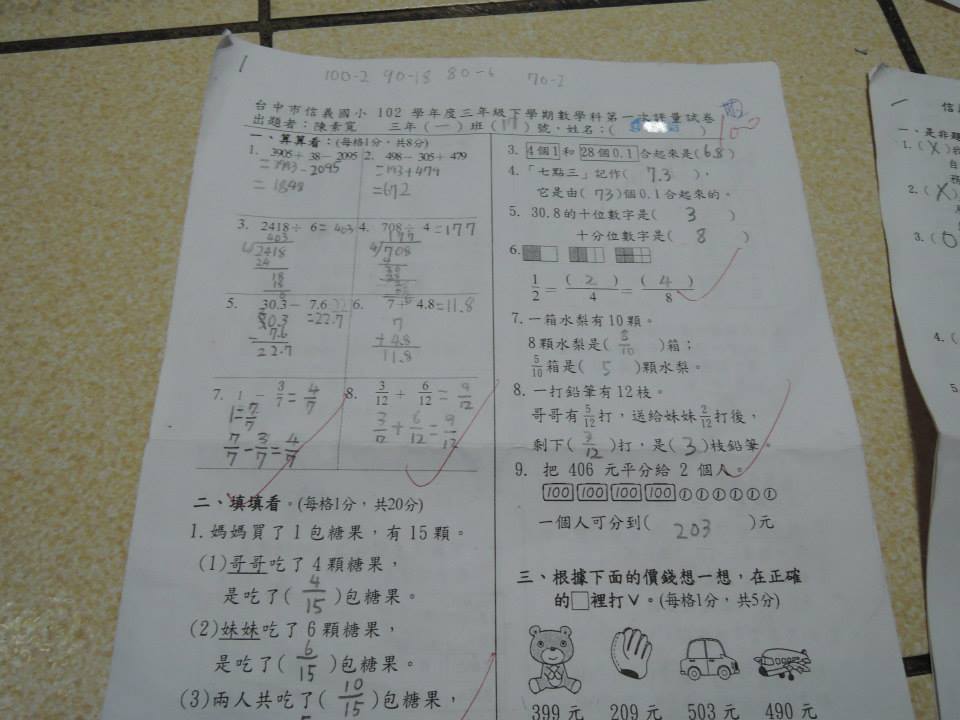 100-2 90-18 80-6 70-2
台中市信義國小 102 學年度三年級下學期數學科第一次評量試卷
出題者：陳素寬 三年(一)班( )號，姓名：( )
100
一、算算看：(每格1分，共8分)
1. 3905÷ 38- 2095
- 2095
= 1848
2. 498- 305+ 479
=193+479
=672
3. 2418÷ 6= 403
403
6 2418
24
18
18
0
4. 708÷ 4=177
177
4 708
5. 30.3- 7.6
=22.7
30.3
- 7.6
22.7
6. 7+ 4.8=11.8
7
+4.8
11.8
7. 1 - 3/7 = 4/7
1=7/7
7/7-3/7=4/7
8. 3/12 + 6/12 = 9/12
+6/12=9/12
二、填填看。(每格1分，共20分)
1. 媽媽買了1包糖果，有15顆。
(1)哥哥吃了4顆糖果，
是吃了( 4/15 )包糖果。
(2)妹妹吃了6顆糖果，
是吃了( 6/15 )包糖果。
(3)兩人共吃了( 10/15 )包糖果，
3. 4個1 和 28個0.1 合起來是(6.8)
4.「七點三」記作( 7.3 )，
它是由(73)個0.1合起來的。
5. 30.8的十位數字是( 3 )
十分位數字是( 8 )
6.
1/2 = ( 2 )/4 = ( 4 )/8
7. 一箱水梨有10顆。
8顆水梨是( 8/10 )箱；
5/10箱是( 5 )顆水梨。
8. 一打鉛筆有12枝。
哥哥有5/12打，送給妹妹2/12打後，
剩下( 3/12 )打，是( 3 )枝鉛筆。
9. 把 406 元平分給 2 個人。
100 100 100 100 1 1 1 1 1 1
一個人可分到( 203 )元
三、根據下面的價錢想一想，在正確
的□裡打ˇ。(每格1分，共5分)
399 元 209 元 503 元 490 元
一、是非題
1.(X)
2.(X)
3.(O
4.(
5.